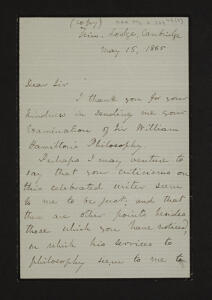 (copy)
Trin. Lodge, Cambridge
May 15, 1865
Dear Sir
I thank you for your
kindness in sending me your
Examination of Sir William
Hamilton's Philosophy.
Perhaps I may venture to
say that your criticisms on
this celebrated writer seem
to me to be just, and that
there are other points besides
those which you have noticed,
in which his services to
philosophy seem to me to